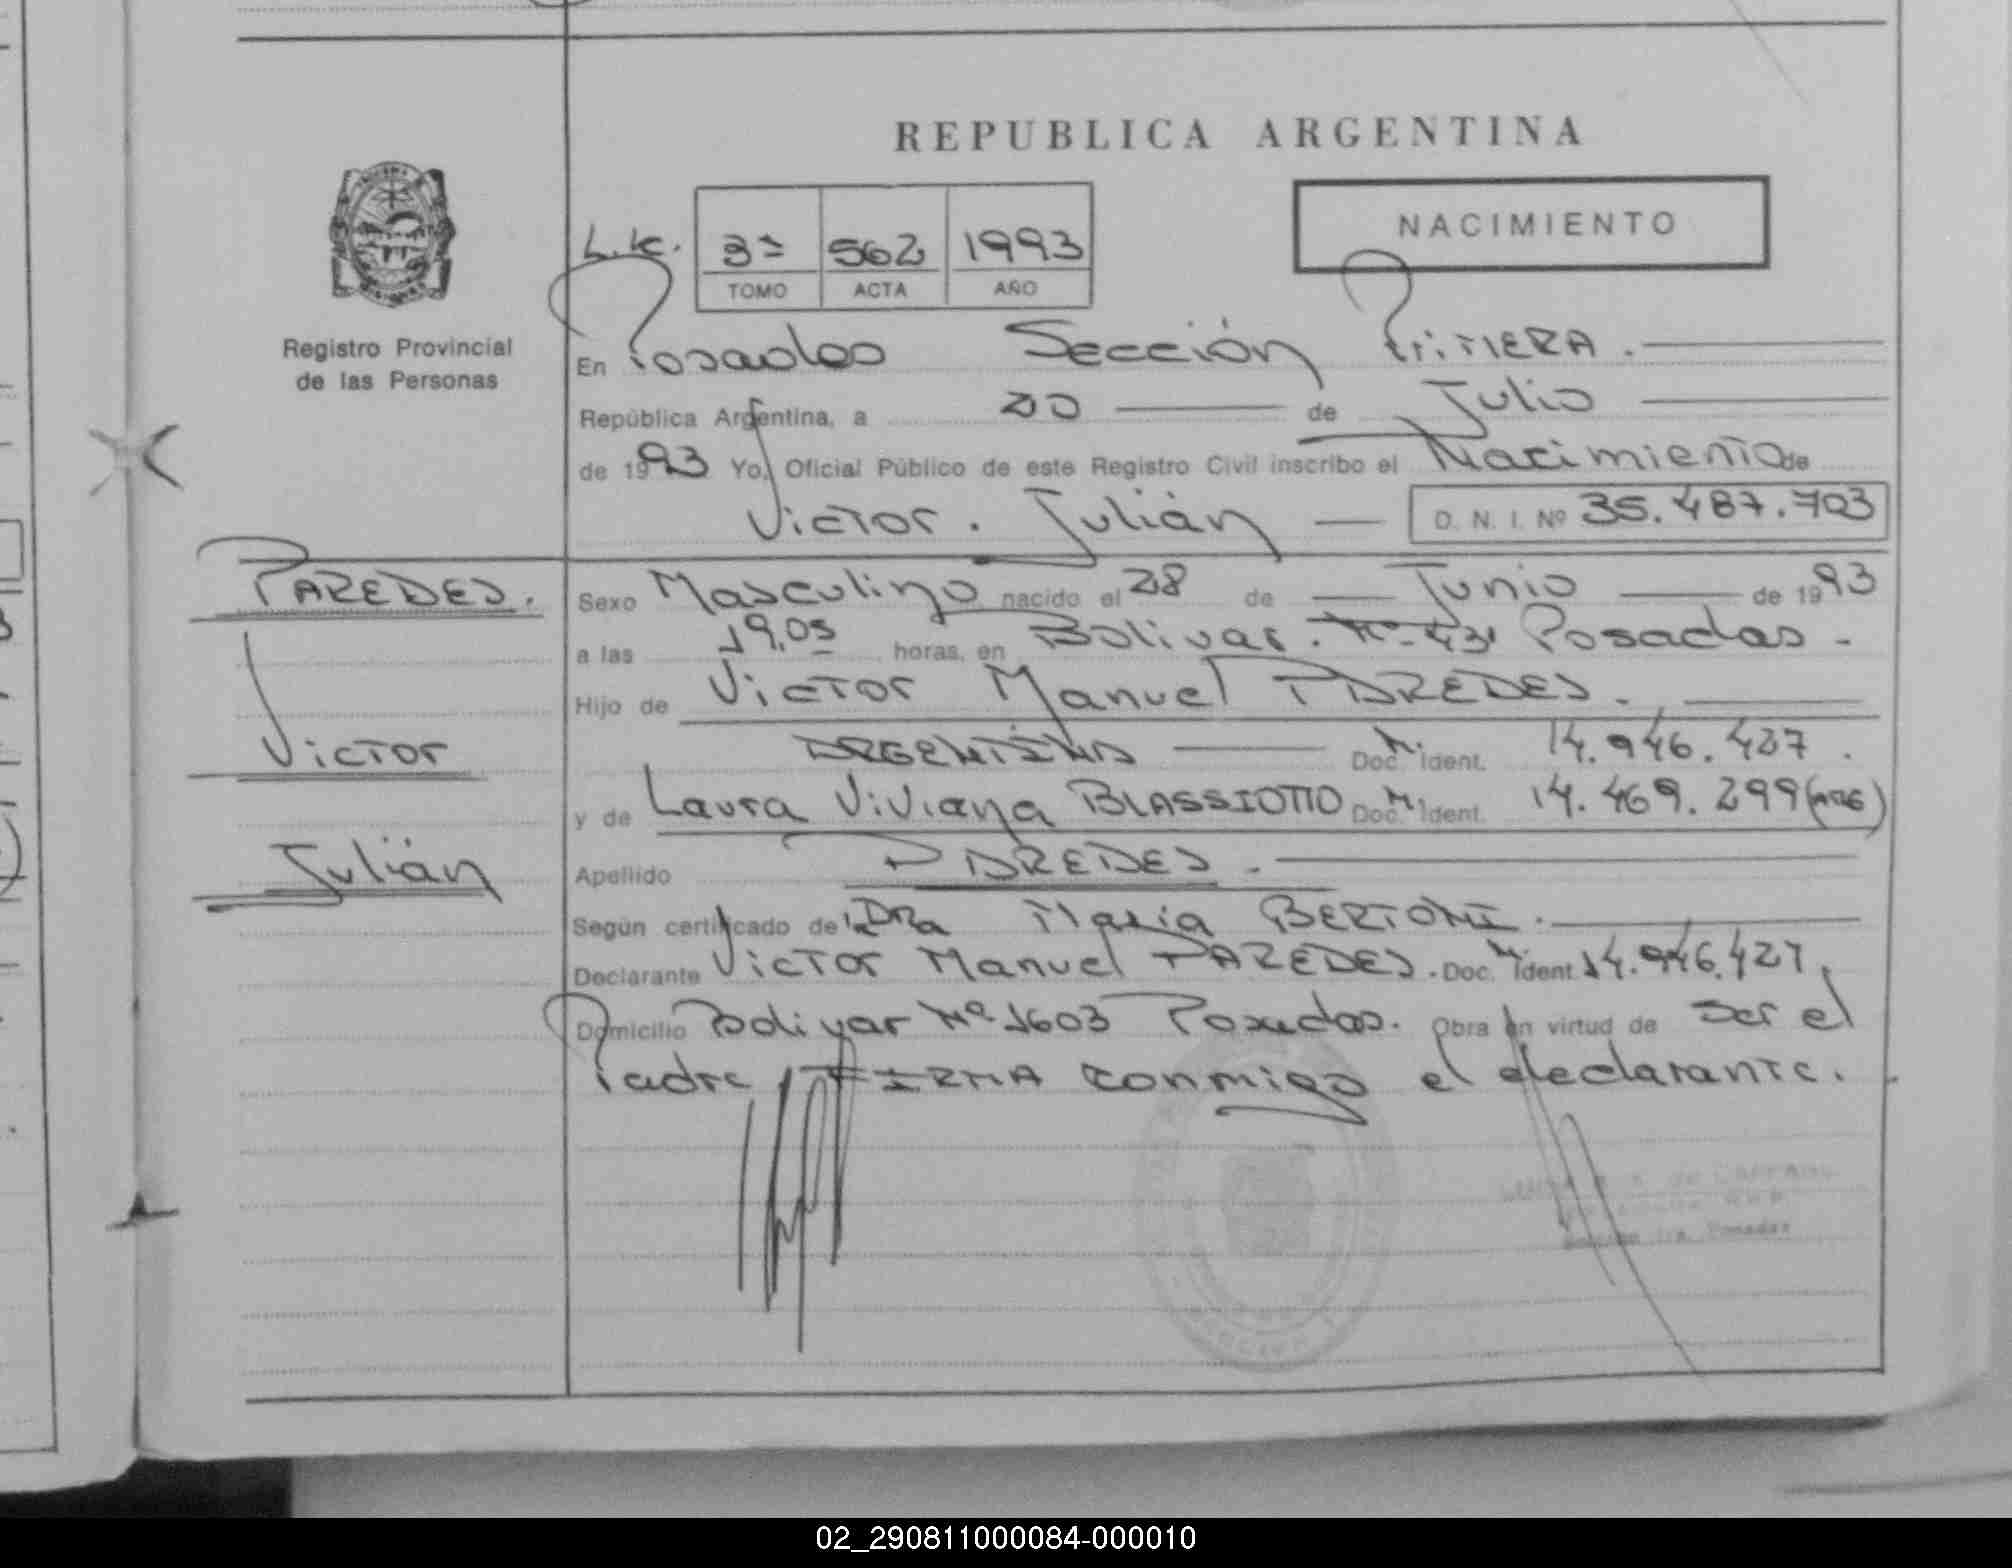 REPUBLICA ARGENTINA
NACIMIENTO
L.K. 3º 562 1993
TOMO ACTA AÑO
Registro Provincial
de las Personas
En Posadas Sección PriMERA.
República Argentina, a 20 de Julio
de 1993 Yo, Oficial Público de este Registro Civil inscribo el Nacimiento de
Victor. Julián D. N. I. Nº 35.487.703
PAREDES.
Victor
Julián
Sexo Masculino nacido el 28 de Junio de 1993
a las 19,05 horas, en Bolivar. Nº 431 Posadas.
Hijo de Victor Manuel PAREDES.
ARGENTINA Doc. N. Ident. 14.946.427.
y de Laura Viviana BLASSIOTTO Doc. N. Ident. 14.469.299 (ARG)
Apellido PAREDES.
Según certificado de la DRa Maria BERTONI.
Declarante Victor Manuel PAREDES. Doc. N. Ident. 14.946.427,
Domicilio Bolivar Nº 1603 Posadas. Obra en virtud de ser el
Padre, FIRMA conmigo el declarante.
Sección 1ra. Posadas
02_290811000084-000010